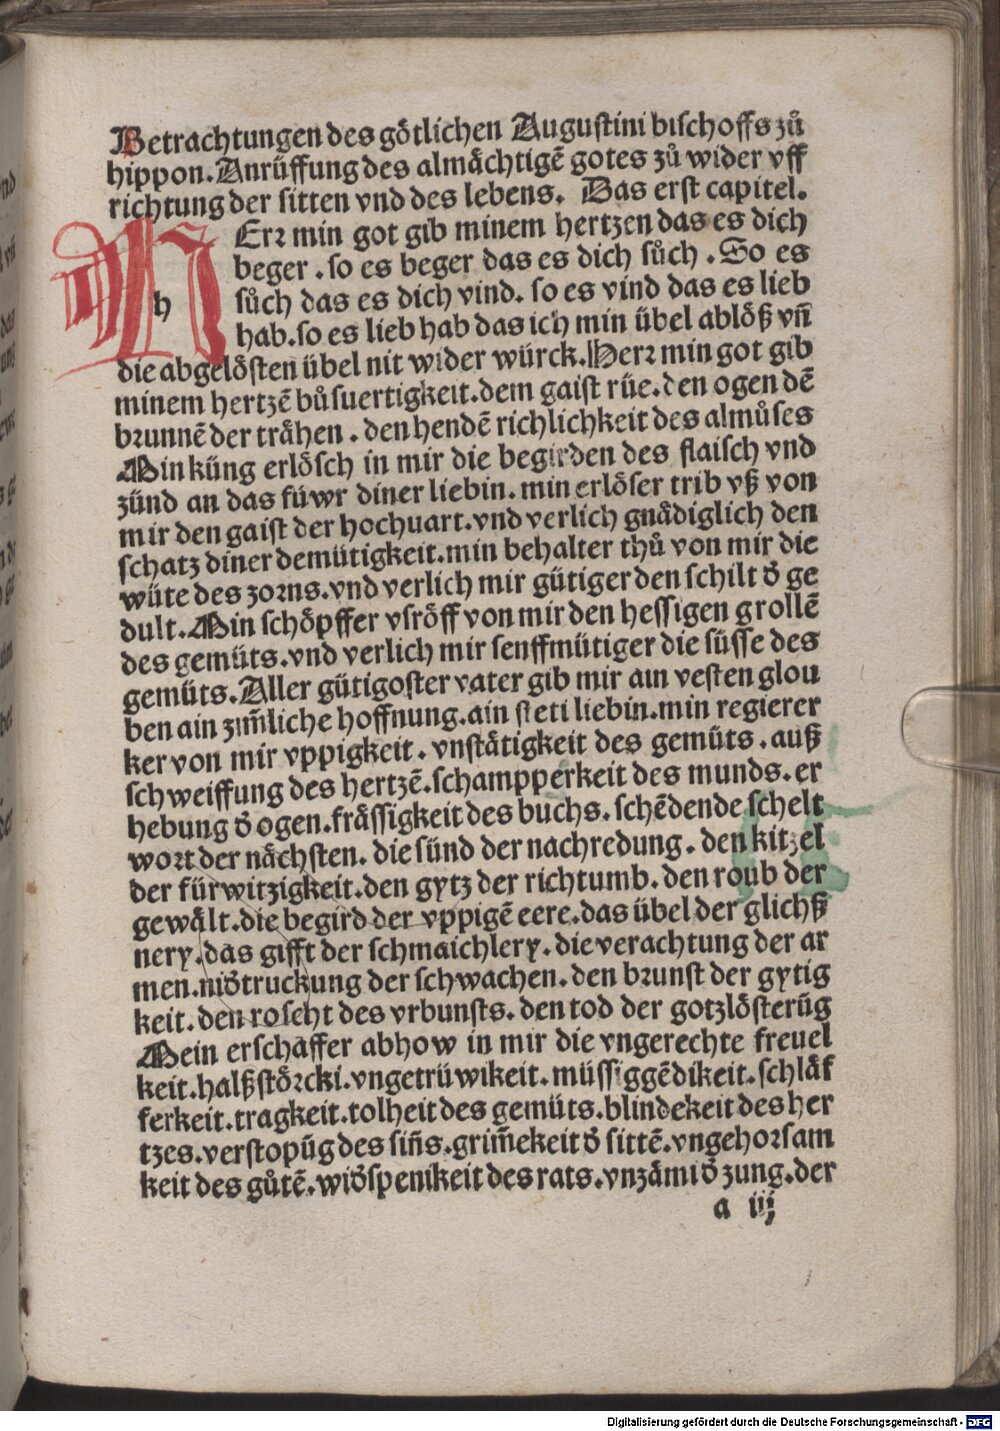 Betrachtungen des götlichen Augustini bischoffs zů
hippon. Anrüffung des almächtigē gotes zů wider vff
richtung der sitten vnd des lebens. Das erst capitel.
h Erꝛ min got gib minem hertzen das es dich
beger . so es beger das es dich sůch . So es
sůch das es dich vind. so es vind das es lieb
hab. so es lieb hab das ich min übel ablöß vn̄
die abgelösten übel nit wider würck. Herꝛ min got gib
minem hertzē bůsuertigkeit. dem gaist rüe. den ogen dē
bꝛunnē der trähen . den hendē richlichkeit des almůses
Min küng erlösch in mir die begirden des flaisch vnd
zünd an das füwr diner liebin. min erlöser trib vß von
mir den gaist der hochuart. vnd verlich gnädiglich den
schatz diner demütigkeit. min behalter thů von mir die
wüte des zoꝛns. vnd verlich mir gütiger den schilt d̕ ge
dult. Min schöpffer vsröff von mir den hessigen grollē
des gemüts. vnd verlich mir senffmütiger die süsse des
gemüts. Aller gütigoster vater gib mir ain vesten glou
ben ain zim̄liche hoffnung. ain steti liebin. min regierer
ker von mir vppigkeit . vnstätigkeit des gemüts . auß
schweiffung des hertzē. schampperkeit des munds. er
hebung d̕ ogen. frässigkeit des buchs. schēdende schelt
woꝛt der nächsten. die sünd der nachredung . den kitzel
der fürwitzigkeit. den gytz der richtumb. den roub der
gewält. die begird der vppigē eere. das übel der glichß
nery. das gifft der schmaichlery. die verachtung der ar
men. nid̕truckung der schwachen. den bꝛunst der gytig
keit. den roscht des vrbunsts. den tod der gotzlösterūg
Mein erschaffer abhow in mir die vngerechte freuel
keit. halßstöꝛcki. vngetrüwikeit. müssiggēdikeit. schläf
ferkeit. tragkeit. tolheit des gemüts. blindekeit des her
tzes. verstopūg des sin̄s. grim̄ekeit d̕ sittē. vngehoꝛsam
keit des gůtē. wid̕spenikeit des rats. vnzämi d̕ zung. der
a iij
Digitalisierung gefördert durch die Deutsche Forschungsgemeinschaft - DFG